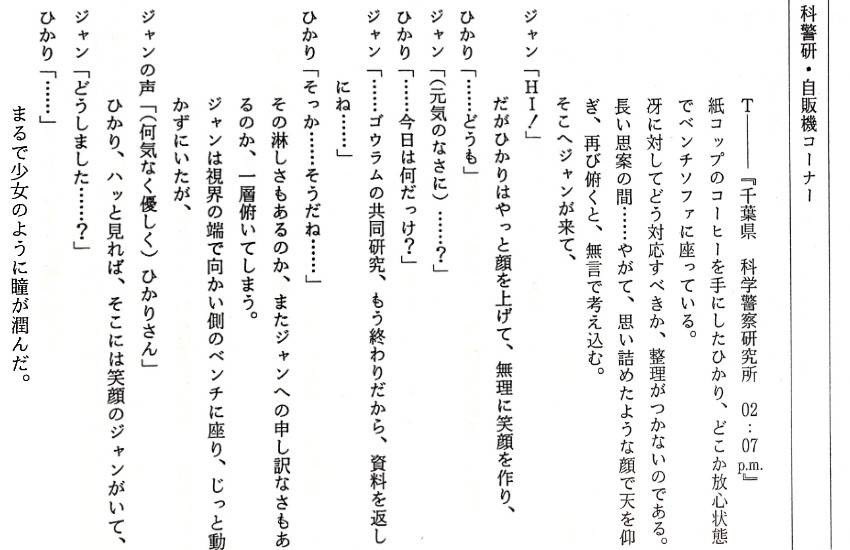 科警研・自販機コーナー
T――『千葉県　科学警察研究所　02：07p.m.』
紙コップのコーヒーを手にしたひかり、どこか放心状態
でベンチソファに座っている。
冴に対してどう対応すべきか、整理がつかないのである。
長い思案の間……やがて、思い詰めたような顔で天を仰
ぎ、再び俯くと、無言で考え込む。
そこへジャンが来て、
ジャン「HI！」
だがひかりはやっと顔を上げて、無理に笑顔を作り、
ひかり「……どうも」
ジャン「（元気のなさに）……？」
ひかり「……今日は何だっけ？」
ジャン「……ゴウラムの共同研究、もう終わりだから、資料を返し
にね……」
ひかり「そっか……そうだね……」
その淋しさもあるのか、またジャンへの申し訳なさもあ
るのか、一層俯いてしまう。
ジャンは視界の端で向かい側のベンチに座り、じっと動
かずにいたが、
ジャンの声「（何気なく優しく）ひかりさん」
ひかり、ハッと見れば、そこには笑顔のジャンがいて、
ジャン「どうしました……？」
ひかり「……」
まるで少女のように瞳が潤んだ。